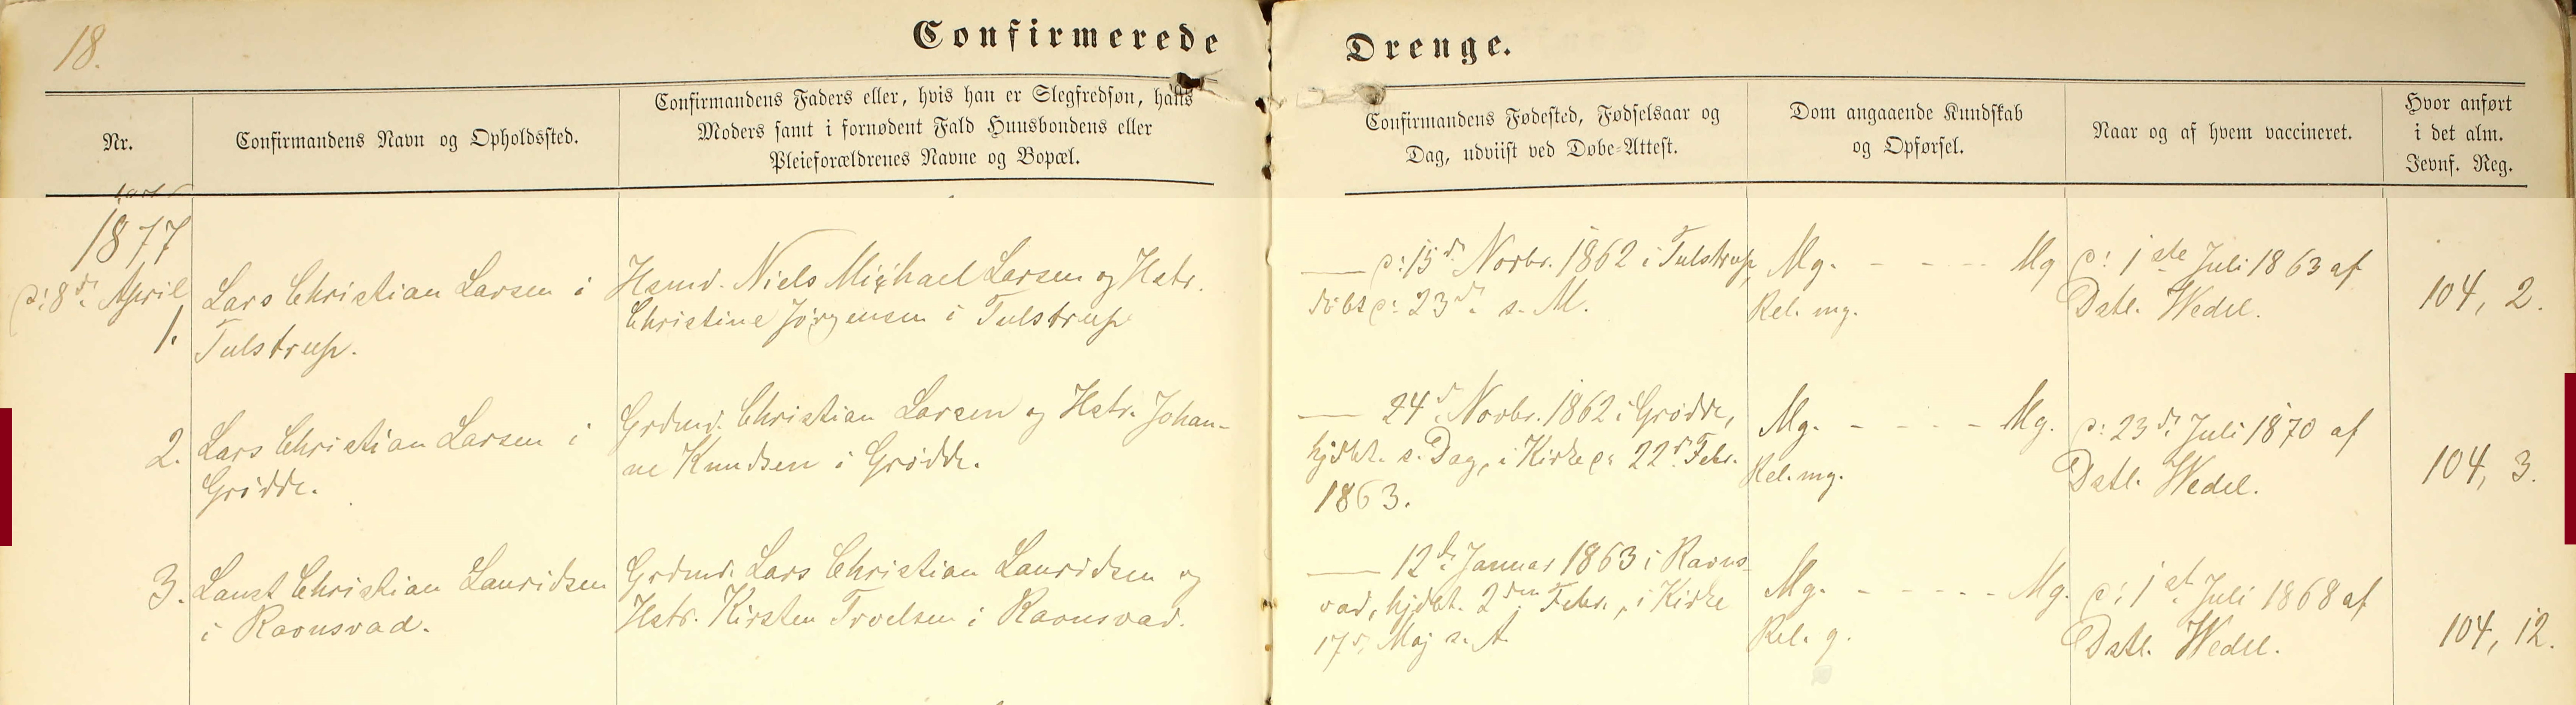 18.
Confirmerede Drenge.
Nr.
Confirmandens Navn og Opholdssted.
Confirmandens Faders eller, hvis han er Slegfredsøn, hans
Moders samt i fornødent Fald Huusbondens eller
Pleieforældrenes Navne og Bopæl.
Confirmandens Fødested, Fødselsaar og
Dag, udviist ved Døbe-Attest.
Dom angaaende Kundskab
og Opførsel.
Naar og af hvem vaccineret.
Hvor anført
i det alm.
Jevnf. Reg.
1877
d: 8de April
1.
Lars Christian Larsen i
Tulstrup.
Hsmd. Niels Michael Larsen og Hstr.
Christine Jörgensen i Tulstrup
— d: 15de Novbr. 1862 i Tulstrup,
döbt d: 23de s. M.
Mg. - - - - Mg
Rel. mg.
d: 1ste Juli 1863 af
Dstl. Wedel.
104, 2.
2.
Lars Christian Larsen i
Grödde.
Grdmd. Christian Larsen og Hstr. Johan-
ne Knudsen i Grödde.
— 24d. Novbr. 1862 i Grödde,
hjdbt. s. Dag, i Kirke d: 22d. Febr.
1863.
Mg. - - - - Mg.
Rel. mg.
d: 23de Juli 1870 af
Dstl. Wedel.
104, 3.
3.
Laust Christian Lauridsen
i Ravnsvad.
Grdmd. Lars Christian Lauridsen og
Hstr. Kirsten Troelsen i Ravnsvad.
— 12te Januar 1863 i Ravns-
vad, hjdbt. 2den Febr., i Kirke
17d. Maj s. A.
Mg. - - - - - Mg.
Rel. g.
d: 1st. Juli 1868 af
Dstl. Wedel.
104, 12.